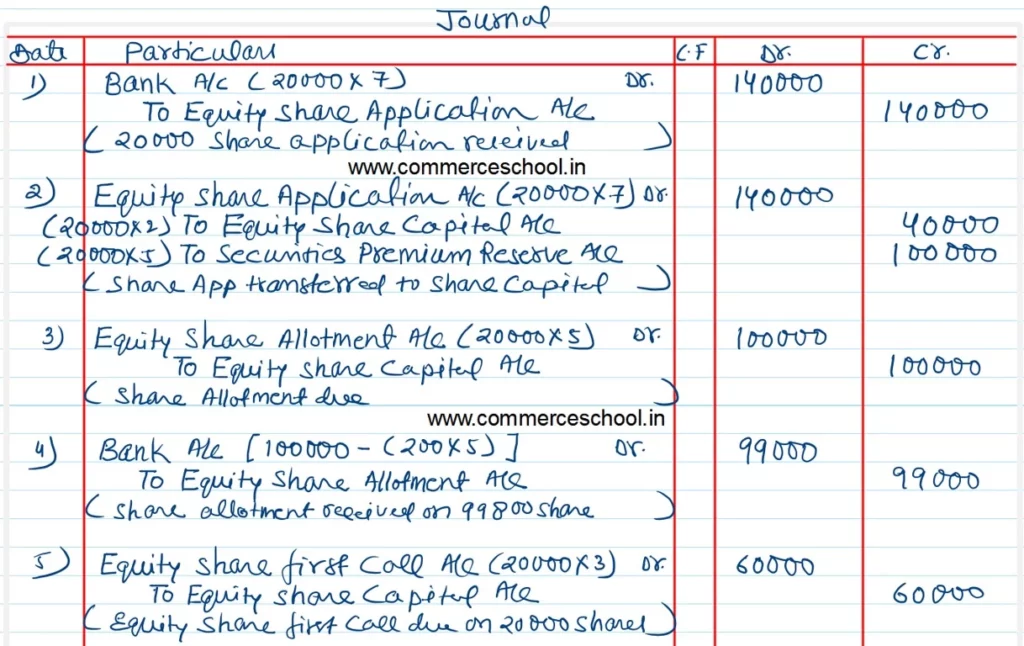 Journal
Date Particulars C.F Dr. Cr.
1) Bank A/c (20000 X 7) Dr. 140000
To Equity Share Application A/c 140000
( 20000 Share application received )
www.commerceschool.in
2) Equity Share Application A/c (20000 X 7) Dr. 140000
(20000X2) To Equity Share Capital A/c 40000
(20000X5) To Securities Premium Reserve A/c 100000
( Share App transferred to Share Capital )
3) Equity Share Allotment A/c (20000 X 5) Dr. 100000
To Equity Share Capital A/c 100000
( Share Allotment due )
www.commerceschool.in
4) Bank A/c [100000 - (200 X 5) ] Dr. 99000
To Equity Share Allotment A/c 99000
( Share allotment received on 99800 share )
5) Equity Share first Call A/c (20000 X 3) Dr. 60000
To Equity Share Capital A/c 60000
( Equity Share first Call due on 20000 Shares )